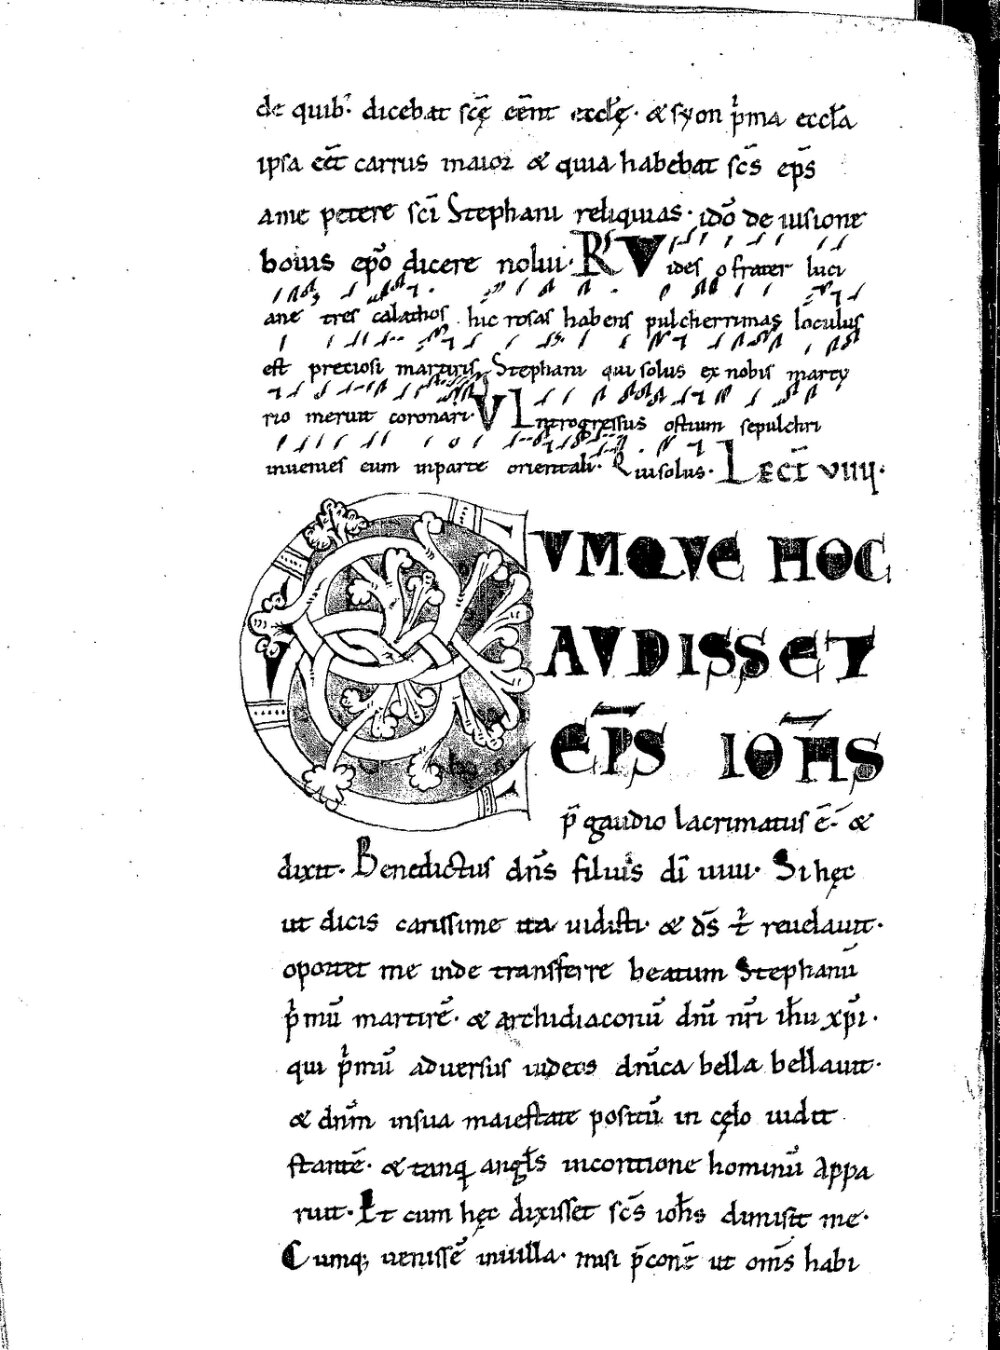 de quib; dicebat scę eēnt eccłę· & syon p̍ma eccła
ipsa eēt carrus maior & quia habebat sc̄s ep̄s
a me petere sc̄i Stephani reliquias· idō de iusione
bouis ep̄o dicere nolui· R̸ Vides o frater luci
ane tres calathos hic rosas habens pulcherrimas loculus
est preciosi martiris Stephani qui solus ex nobis marty
rio meruit coronari· V̸ Ingrogressus ostium sepulchri
inuenies eum inparte orientali· R̸ Quisolus· Lect̄ VIIII·
CVMQVE HOC
AVDISSET
EP̄S IOH̄S
p̄ gaudio lacrimatus ē· &
dixit· Benedictus dn̄s filius di uiui· Si hęc
ut dicis carissime ita uidisti· & ds̄ t̍ reuelauit·
oportet me inde transferre beatum Stephanū
p̍mū martirē· & archidiaconū dn̄i nr̄i ih̄u xp̄i·
qui p̍mū aduersus iudeos dn̄ica bella bellauit·
& dn̄m insua maiestate positū in cęlo uidit
stantē· & tanq angłs incontione hominū appa
ruit· Et cum hęc dixisset sc̄s ioh̄s dimisit me·
Cumq; uenissē inuilla· misi p̄conē ut om̄s habi